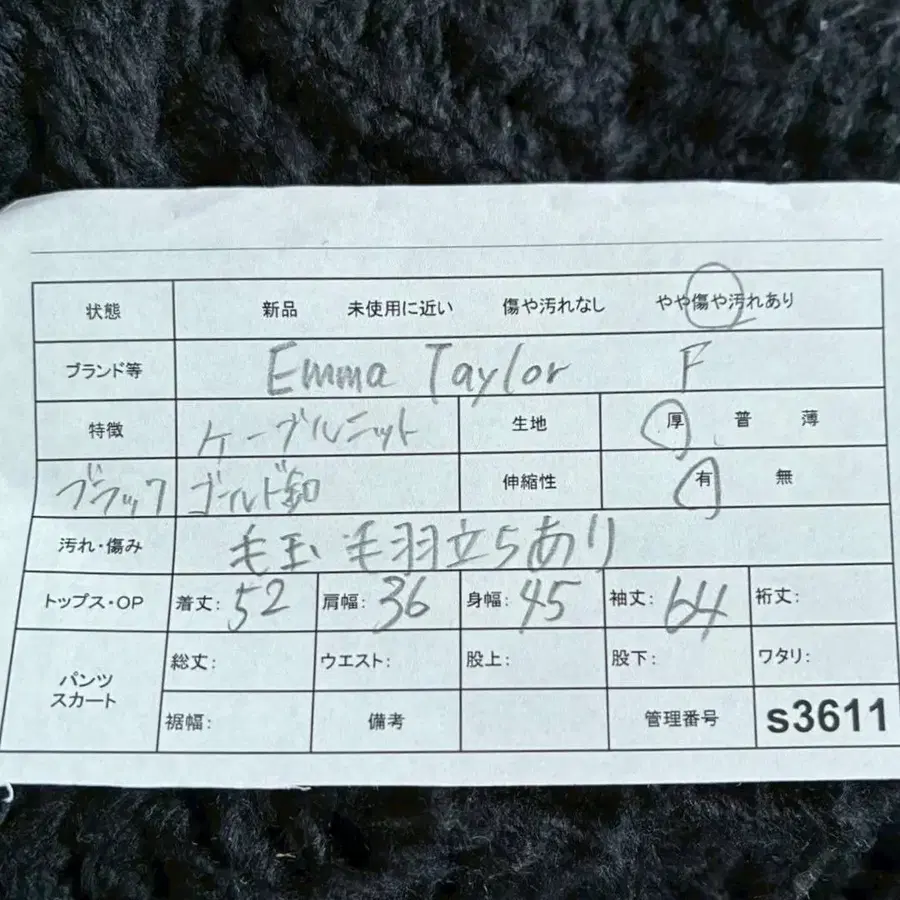 状態 新品 未使用に近い 傷や汚れなし やや傷や汚れあり
ブランド等 Emma Taylor F
特徴 ケーブルニット 生地 厚 普 薄
ブラック ゴールド釦 伸縮性 有 無
汚れ・傷み 毛玉 毛羽立ちあり
トップス・OP 着丈: 52 肩幅: 36 身幅: 45 袖丈: 64 裄丈:
パンツ スカート 総丈: ウエスト: 股上: 股下: ワタリ:
裾幅: 備考 管理番号 s3611